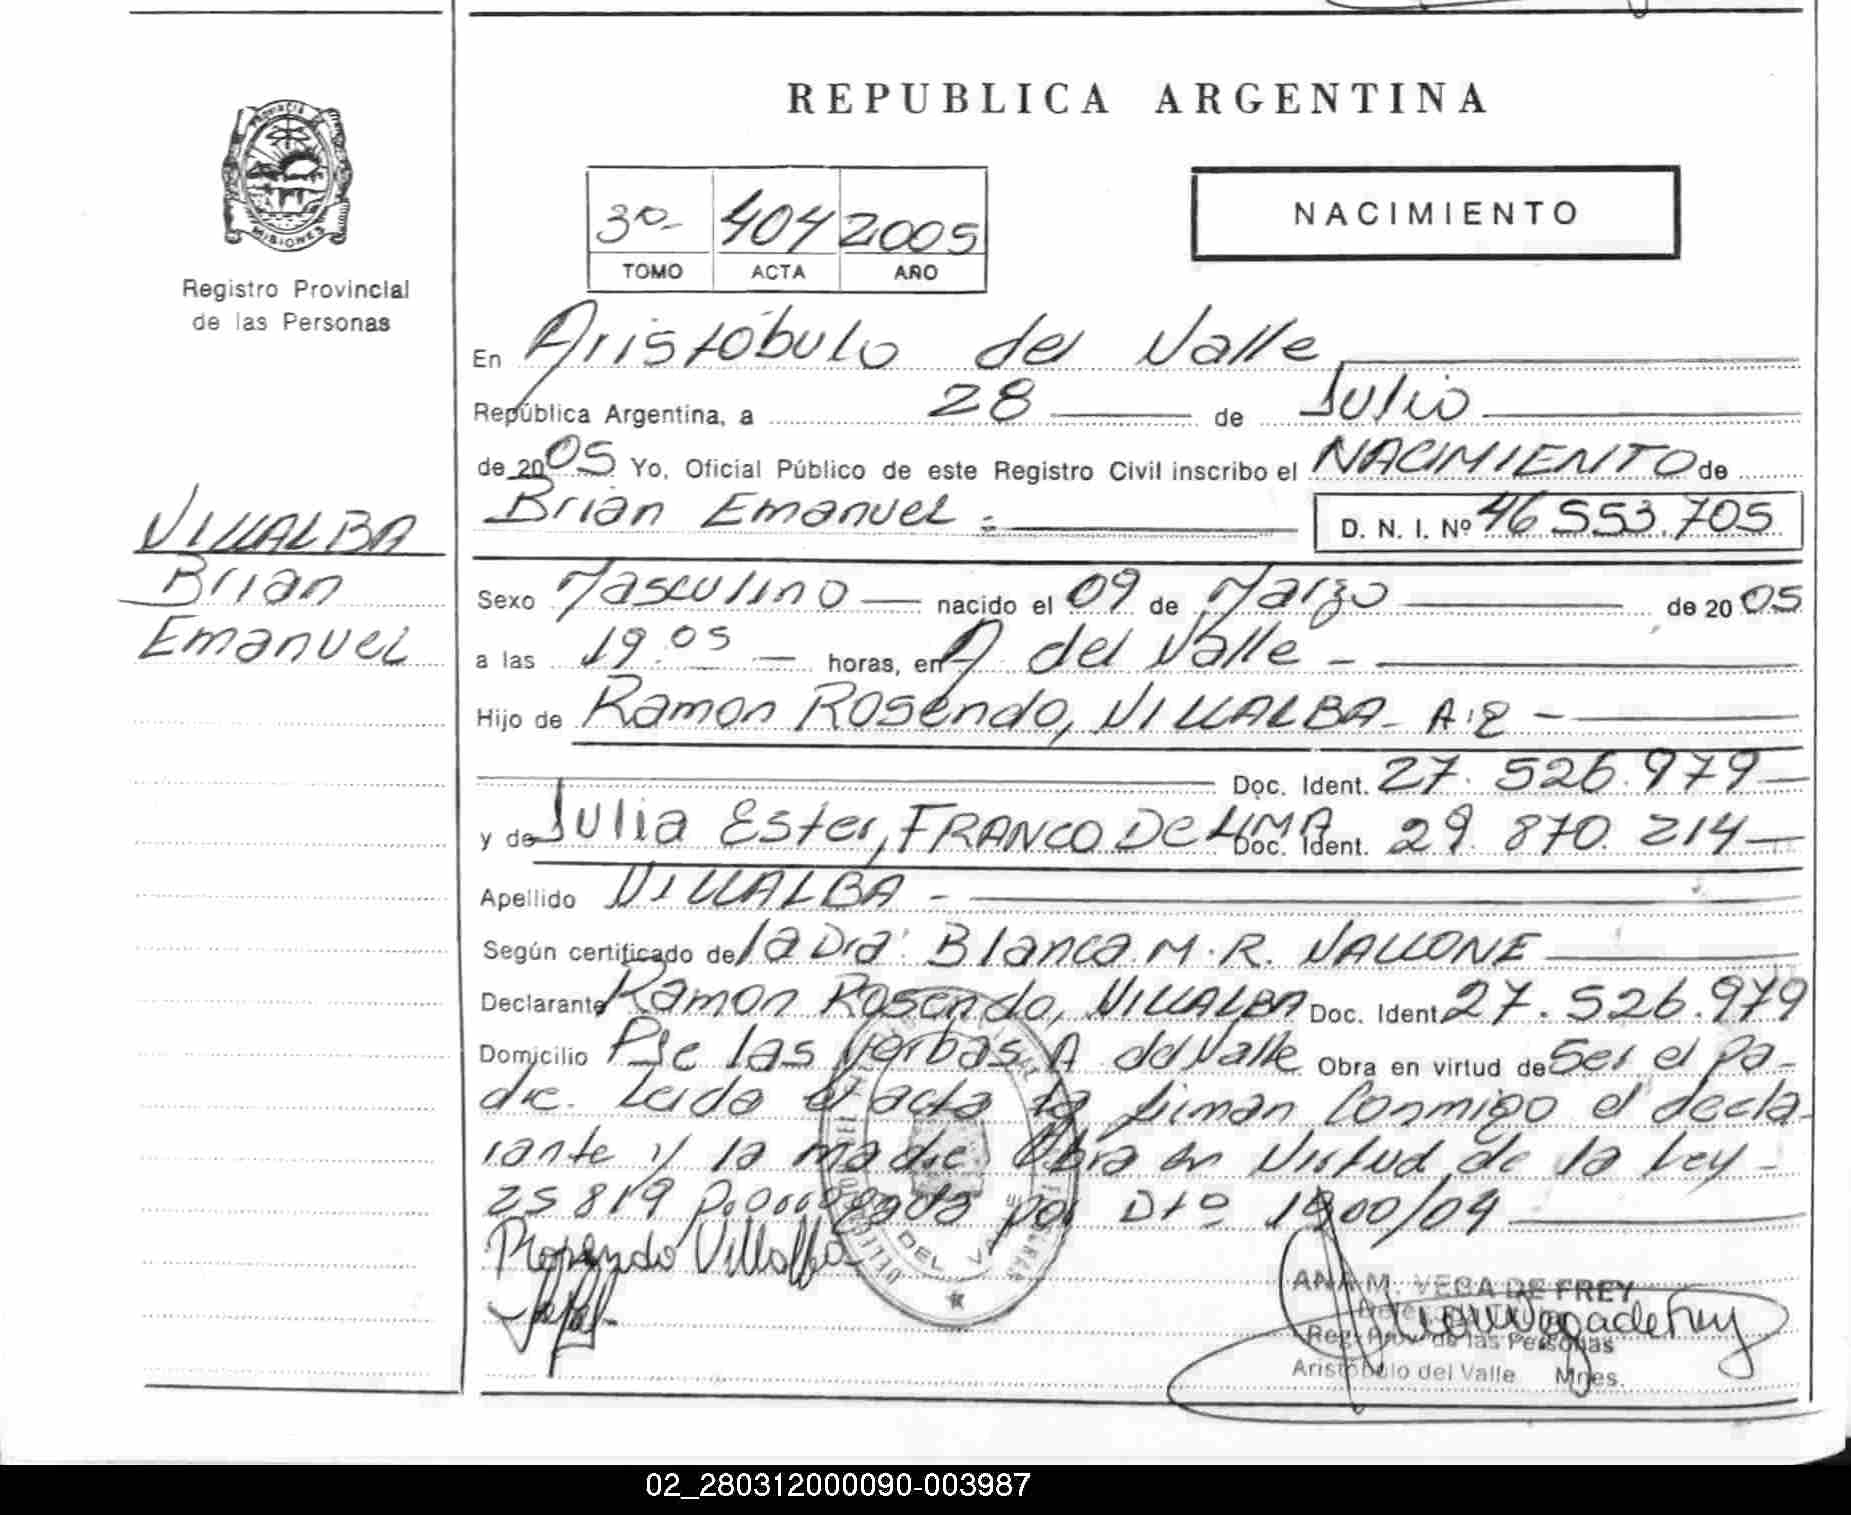 REPUBLICA ARGENTINA
PROVINCIA
MISIONES
Registro Provincial
de las Personas
3º- 404 2005
TOMO ACTA AÑO
NACIMIENTO
En Aristóbulo del Valle
República Argentina, a 28 de Julio
de 2005 Yo, Oficial Público de este Registro Civil inscribo el NACIMIENTO de
Brian Emanuel.- D. N. I. Nº 46 553.705
VILLALBA
Brian
Emanuel
Sexo Masculino nacido el 09 de Marzo de 2005
a las 19.05 horas, en A del Valle
Hijo de Ramon Rosendo, VILLALBA
Doc. Ident. 27.526.979
y de Julia Ester, FRANCO DE LIMA Doc. Ident. 29.870.214
Apellido VILLALBA
Según certificado de la Dra: Blanca M. R. VALLONE
Declarante Ramon Rosendo, VILLALBA Doc. Ident. 27.526.979
Domicilio Pje las Yerbas A. del Valle Obra en virtud de Ser el Pa-
dre. Leida el acta la firman Conmigo el decla-
rante y la madre. Obra en Virtud de la Ley
25819 Prorrogada por Dto 1900/04
Rosendo Villalba
ANA M. VEGA DE FREY
Reg. Prov. de las Personas
Aristóbulo del Valle Mnes.
02_280312000090-003987